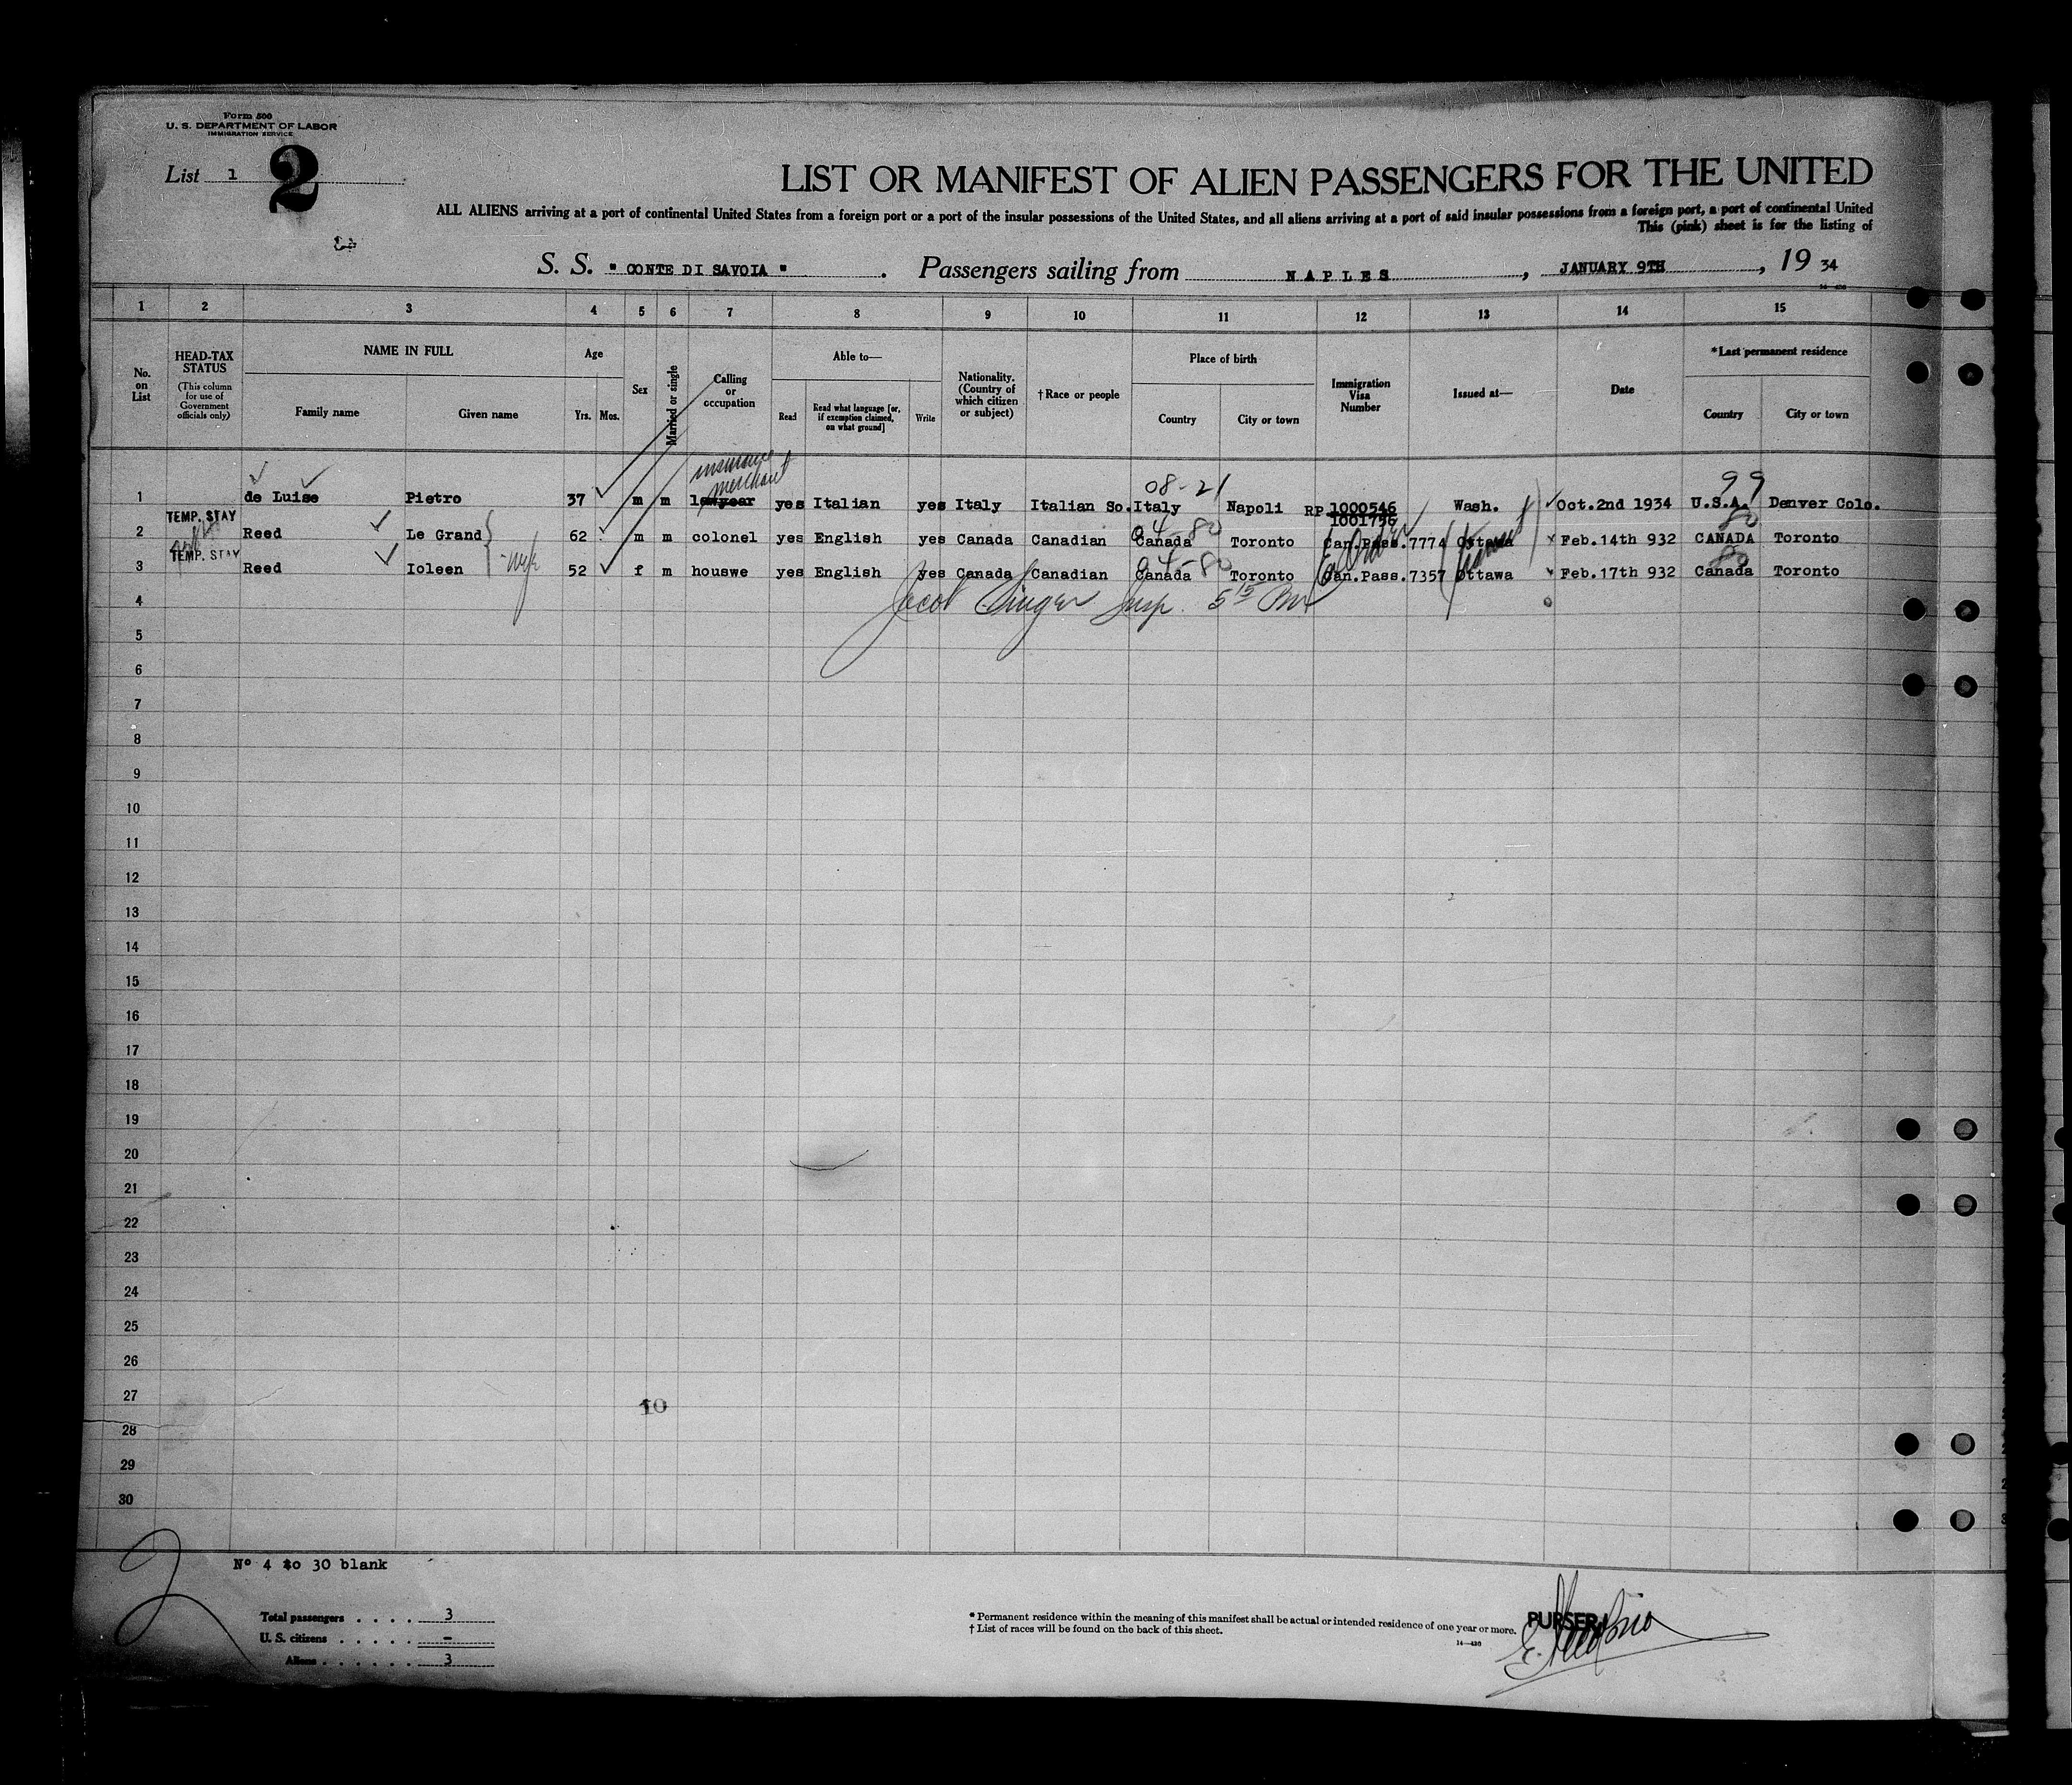 Form 500
U. S. DEPARTMENT OF LABOR
IMMIGRATION SERVICE
List 1
2
LIST OR MANIFEST OF ALIEN PASSENGERS FOR THE UNITED
ALL ALIENS arriving at a port of continental United States from a foreign port or a port of the insular possessions of the United States, and all aliens arriving at a port of said insular possessions from a foreign port, a port of continental United
This (pink) sheet is for the listing of
S. S. "CONTE DI SAVOIA" . Passengers sailing from NAPLES , JANUARY 9TH , 19 34
1 2 3 4 5 6 7 8 9 10 11 12 13 14 15
No. on List
HEAD-TAX STATUS (This column for use of Government officials only)
NAME IN FULL
Family name Given name
Age
Yrs. Mos.
Sex
Married or single
Calling or occupation
Able to—
Read Read what language [or, if exemption claimed, on what ground] Write
Nationality. (Country of which citizen or subject)
†Race or people
Place of birth
Country City or town
Immigration Visa Number
Issued at—
Date
*Last permanent residence
Country City or town
insurance
merchant
08-21
99
1 de Luise Pietro 37 m m lawyear yes Italian yes Italy Italian So. Italy Napoli RP 1000546 Wash. Oct.2nd 1934 U.S.A. Denver Colo.
1001756
TEMP. STAY
04-80
80
2 Reed Le Grand 62 m m colonel yes English yes Canada Canadian Canada Toronto Can.Pass.7774 Ottawa Feb.14th 932 CANADA Toronto
TEMP. STAY
wife
04-80
80
3 Reed Ioleen 52 f m houswe yes English yes Canada Canadian Canada Toronto Can.Pass.7357 Ottawa Feb.17th 932 Canada Toronto
4 Jacob Singer Insp. 5 15 Pm
5
6
7
8
9
10
11
12
13
14
15
16
17
18
19
20
21
22
23
24
25
26
27
10
28
29
30
Nº 4 to 30 blank
Total passengers . . . . 3
U. S. citizens . . . . . –
Aliens . . . . . . 3
* Permanent residence within the meaning of this manifest shall be actual or intended residence of one year or more.
† List of races will be found on the back of this sheet.
14—430
PURSER